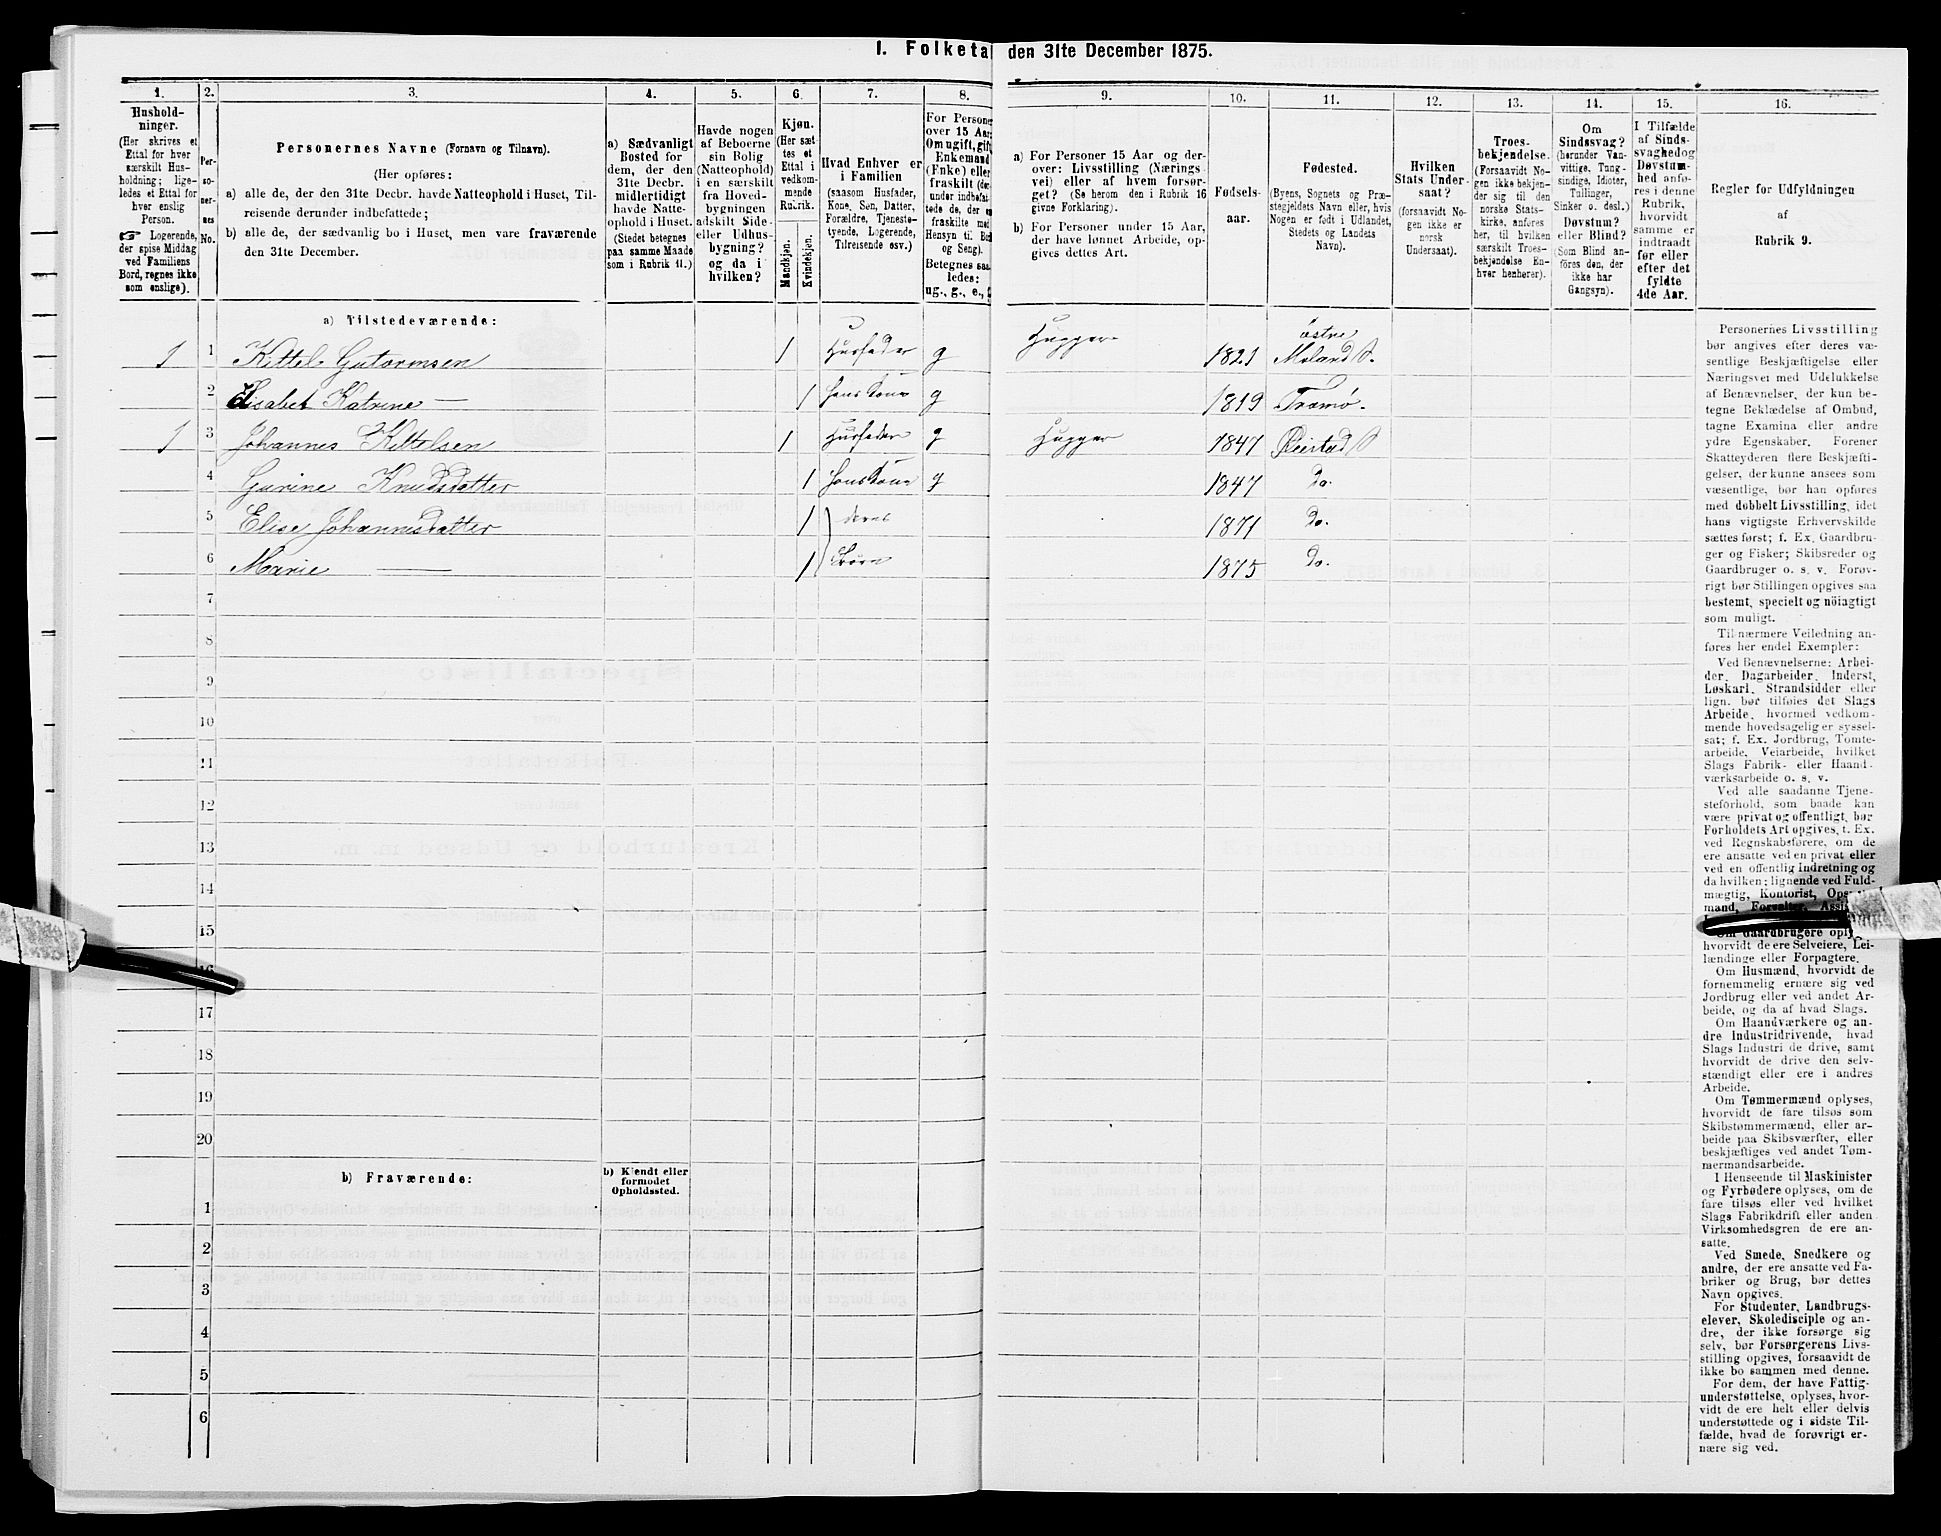 I. Folketal den 31te December 1875.
1. 2. 3. 4. 5. 6. 7. 8. 9. 10. 11. 12. 13. 14. 15. 16.
Hushold-
ninger.
(Her skrives et
Ettal for hver
særskilt Hus-
holdning; lige-
ledes et Ettal for
hver enslig
Person.
☞ Logerende,
der spise Middag
ved Familiens
Bord, regnes ikke
som enslige).
Per-
so-
ner-
nes
No.
Personernes Navne (Fornavn og Tilnavn).
(Her opføres:
a) alle de, der den 31te Decbr. havde Natteophold i Huset, Til-
reisende derunder indbefattede;
b) alle de, der sædvanlig bo i Huset, men vare fraværende
den 31te December.
a) Sædvanligt
Bosted for
dem, der den
31te Decbr.
midlertidigt
havde Natte-
ophold i Huset.
(Stedet betegnes
paa samme Maade
som i Rubrik 11.)
Havde nogen
af Beboerne
sin Bolig
(Natteophold)
i en særskilt
fra Hoved-
bygningen
adskilt Side-
eller Udhus-
bygning?
og da i
hvilken?
Kjøn.
(Her sæt-
tes et
Ettal i
vedkom-
mende
Rubrik.
Mandkjøn.
Kvindekjøn.
Hvad Enhver er
i Familien
(saasom Husfader,
Kone, Søn, Datter,
Forældre, Tjeneste-
tyende, Logerende,
Tilreisende osv.)
For Persone
over 15 Aar
Om ugift, gift
Enkemand
(Enke) eller
fraskilt (der-
under indbefat-
tede de, der e
fraskilte med
Hensyn til Bo
og Seng).
Betegnes saa
ledes:
ug., g., e., f
a) For Personer 15 Aar og der-
over: Livsstilling (Nærings-
vei) eller af hvem forsør-
get? (Se herom den i Rubrik 16
givne Forklaring).
b) For Personer under 15 Aar,
der have lønnet Arbeide, op-
gives dettes Art.
Fødsels-
aar.
Fødested.
(Byens, Sognets og Præ-
stegjeldets Navn eller, hvis
Nogen er født i Udlandet,
Stedets og Landets
Navn).
Hvilken
Stats Under-
saat?
(forsaavidt No-
gen ikke er
norsk
Undersaat).
Troes-
bekjendelse.
(Forsaavidt No-
gen ikke bekjen-
der sig til den
norske Stats-
kirke, anføres
her, til hvilken
særskilt Troes-
bekjendelse En-
hver henhører).
Om
Sindssvag?
(herunder Van-
vittige, Tung-
sindige, Idioter,
Tullinger,
Sinker o. desl.)
Døvstum?
eller Blind?
(Som Blind an-
føres den, der
ikke har
Gangsyn).
I Tilfælde
af Sinds-
svaghed og
Døvstum-
hed anfø-
res i denne
Rubrik,
hvorvidt
samme er
indtraadt
før eller
efter det
fyldte
4de Aar.
Regler for Udfyldningen
af
Rubrik 9.
a) Tilstedeværende:
1 1 Kittel Gutormsen 1 Husfader g Hugger 1821 østre Moland S.
2 Elisabet Katrine — 1 hans Kone g 1819 Tromø.
1 3 Johannes Kittelsen 1 Husfader g Hugger 1847 Øeistad S
4 Gurine Knudsdatter 1 hans Kone g 1847 Do.
5 Elise Johannesdatter 1 deres 1871 Do.
6 Marie — 1 Børn 1875 Do.
7
8
9
10
11
12
13
14
15
16
17
18
19
20
b) Fraværende:
b) Kjendt eller
formodet
Opholdssted.
1
2
3
4
5
6
Personernes Livsstilling
bør angives efter deres væ-
sentlige Beskjæftigelse eller
Næringsvei med Udelukkelse
af Benævnelser, der kun be-
tegne Beklædelse af Ombud,
tagne Examina eller andre
ydre Egenskaber. Forener
Skatteyderen flere Beskjæfti-
gelser, der kunne ansees som
væsentlige, bør han opføres
med dobbelt Livsstilling, idet
hans vigtigste Erhvervskilde
sættes først; f. Ex. Gaardbru-
ger og Fisker; Skibsreder og
Gaardbruger o. s. v. Forøv-
rigt bør Stillingen opgives saa
bestemt, specielt og nöiagtigt
som muligt.
Til nærmere Veiledning an-
føres her endel Exempler:
Ved Benævnelserne: Arbei-
der, Dagarbeider, Inderst,
Løskarl, Strandsidder eller
lign. bør tilføies det Slags
Arbeide, hvormed vedkom-
mende hovedsagelig er syssel-
sat; f. Ex. Jordbrug, Tomte-
arbeide, Veiarbeide, hvilket
Slags Fabrik- eller Haand-
værksarbeide o. s. v.
Ved alle saadanne Tjene-
steforhold, som baade kan
være privat og offentligt, bør
Forholdets Art opgives, t. Ex.
ved Regnskabsførere, om de
ere ansatte ved en privat eller
ved en offentlig Indretning og
da hvilken; lignende ved Fuld-
mægtig, Kontorist, Ops
mand, Forvalter, Assi
Om Gaardbrugere oply
hvorvidt de ere Selveiere, Lei-
lændinge eller Forpagtere.
Om Husmænd, hvorvidt de
fornemmelig ernære sig ved
Jordbrug eller ved andet Ar-
beide, og da af hvad Slags.
Om Haandværkere og an-
dre Industridrivende, hvad
Slags Industri de drive, samt
hvorvidt de drive den selv-
stændigt eller ere i andres
Arbeide.
Om Tømmermænd oplyses,
hvorvidt de fare tilsøs som
Skibstømmermænd, eller ar-
beide paa Skibsværfter, eller
beskjæftiges ved andet Tøm-
mermandsarbeide.
I Henseende til Maskinister
og Fyrbødere oplyses, om de
fare tilsøs eller ved hvilket
Slags Fabrikdrift eller anden
Virksomhedsgren de ere an-
satte.
Ved Smede, Snedkere og
andre, der ere ansatte ved Fa-
briker og Brug, bør dettes
Navn opgives.
For Studenter, Landbrugs-
elever, Skoledisciple og an-
dre, der ikke forsørge sig
selv, bør Forsørgerens Livs-
stilling opgives, forsaavidt de
ikke bo sammen med denne.
For dem, der have Fattig-
understøttelse, oplyses, hvor-
vidt de ere helt eller delvis
understøttede og i sidste Til-
fælde, hvad de forøvrigt er-
nære sig ved.